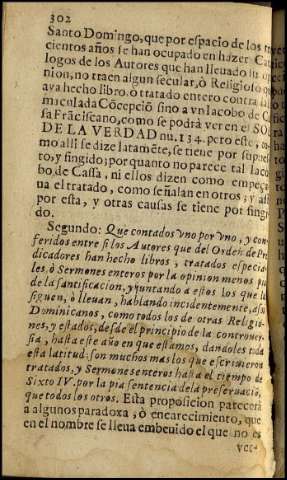 302
Santo Domingo, que por espacio de los
cientos años se han ocupado en hazer
logos de los Autores que han lleuado
nion, no traen algun secular, ò Religioso
aya hecho libro, ò tratado entero contra
maculada Cõcepciõ sino a vn Iacobo de
sa Frãciscano, como se podrà ver en el SOL
DE LA VERDAD nu. 134. pero este,
mo alli se dize latamẽte, se tiene por supues
to, y fingido; por quanto no parece tal Iaco
bo, de Cassa, ni ellos dizen como empeça
ua el tratado, como señalan en otros; y assi
por esta, y otras causas se tiene por fingi
do.
Segundo: Que contados vno por vno, y con
feridos entre si los Autores que del Orden de Pre
dicadores han hecho libros, tratados especia
les, ò Sermones enteros por la opinion menos
de la santificacion, y juntando a estos los que la
siguen, ò lleuan, hablando incidentemente,
Dominicanos, como todos los de otras Religio
nes, y estados, desde el principio de la controuer
sia, hasta este año en que estamos, dandoles toda
esta latitud: son muchos mas los que escriuieron
tratados, y Sermones enteros hasta el tiempo de
Sixto IV. por la pia sentencia de la preseruaciõ,
que todos los otros. Esta proposicion parecerà
a algunos paradoxa, ò encarecimiento, que
en el nombre se lleua embeuido el que no es
ver-